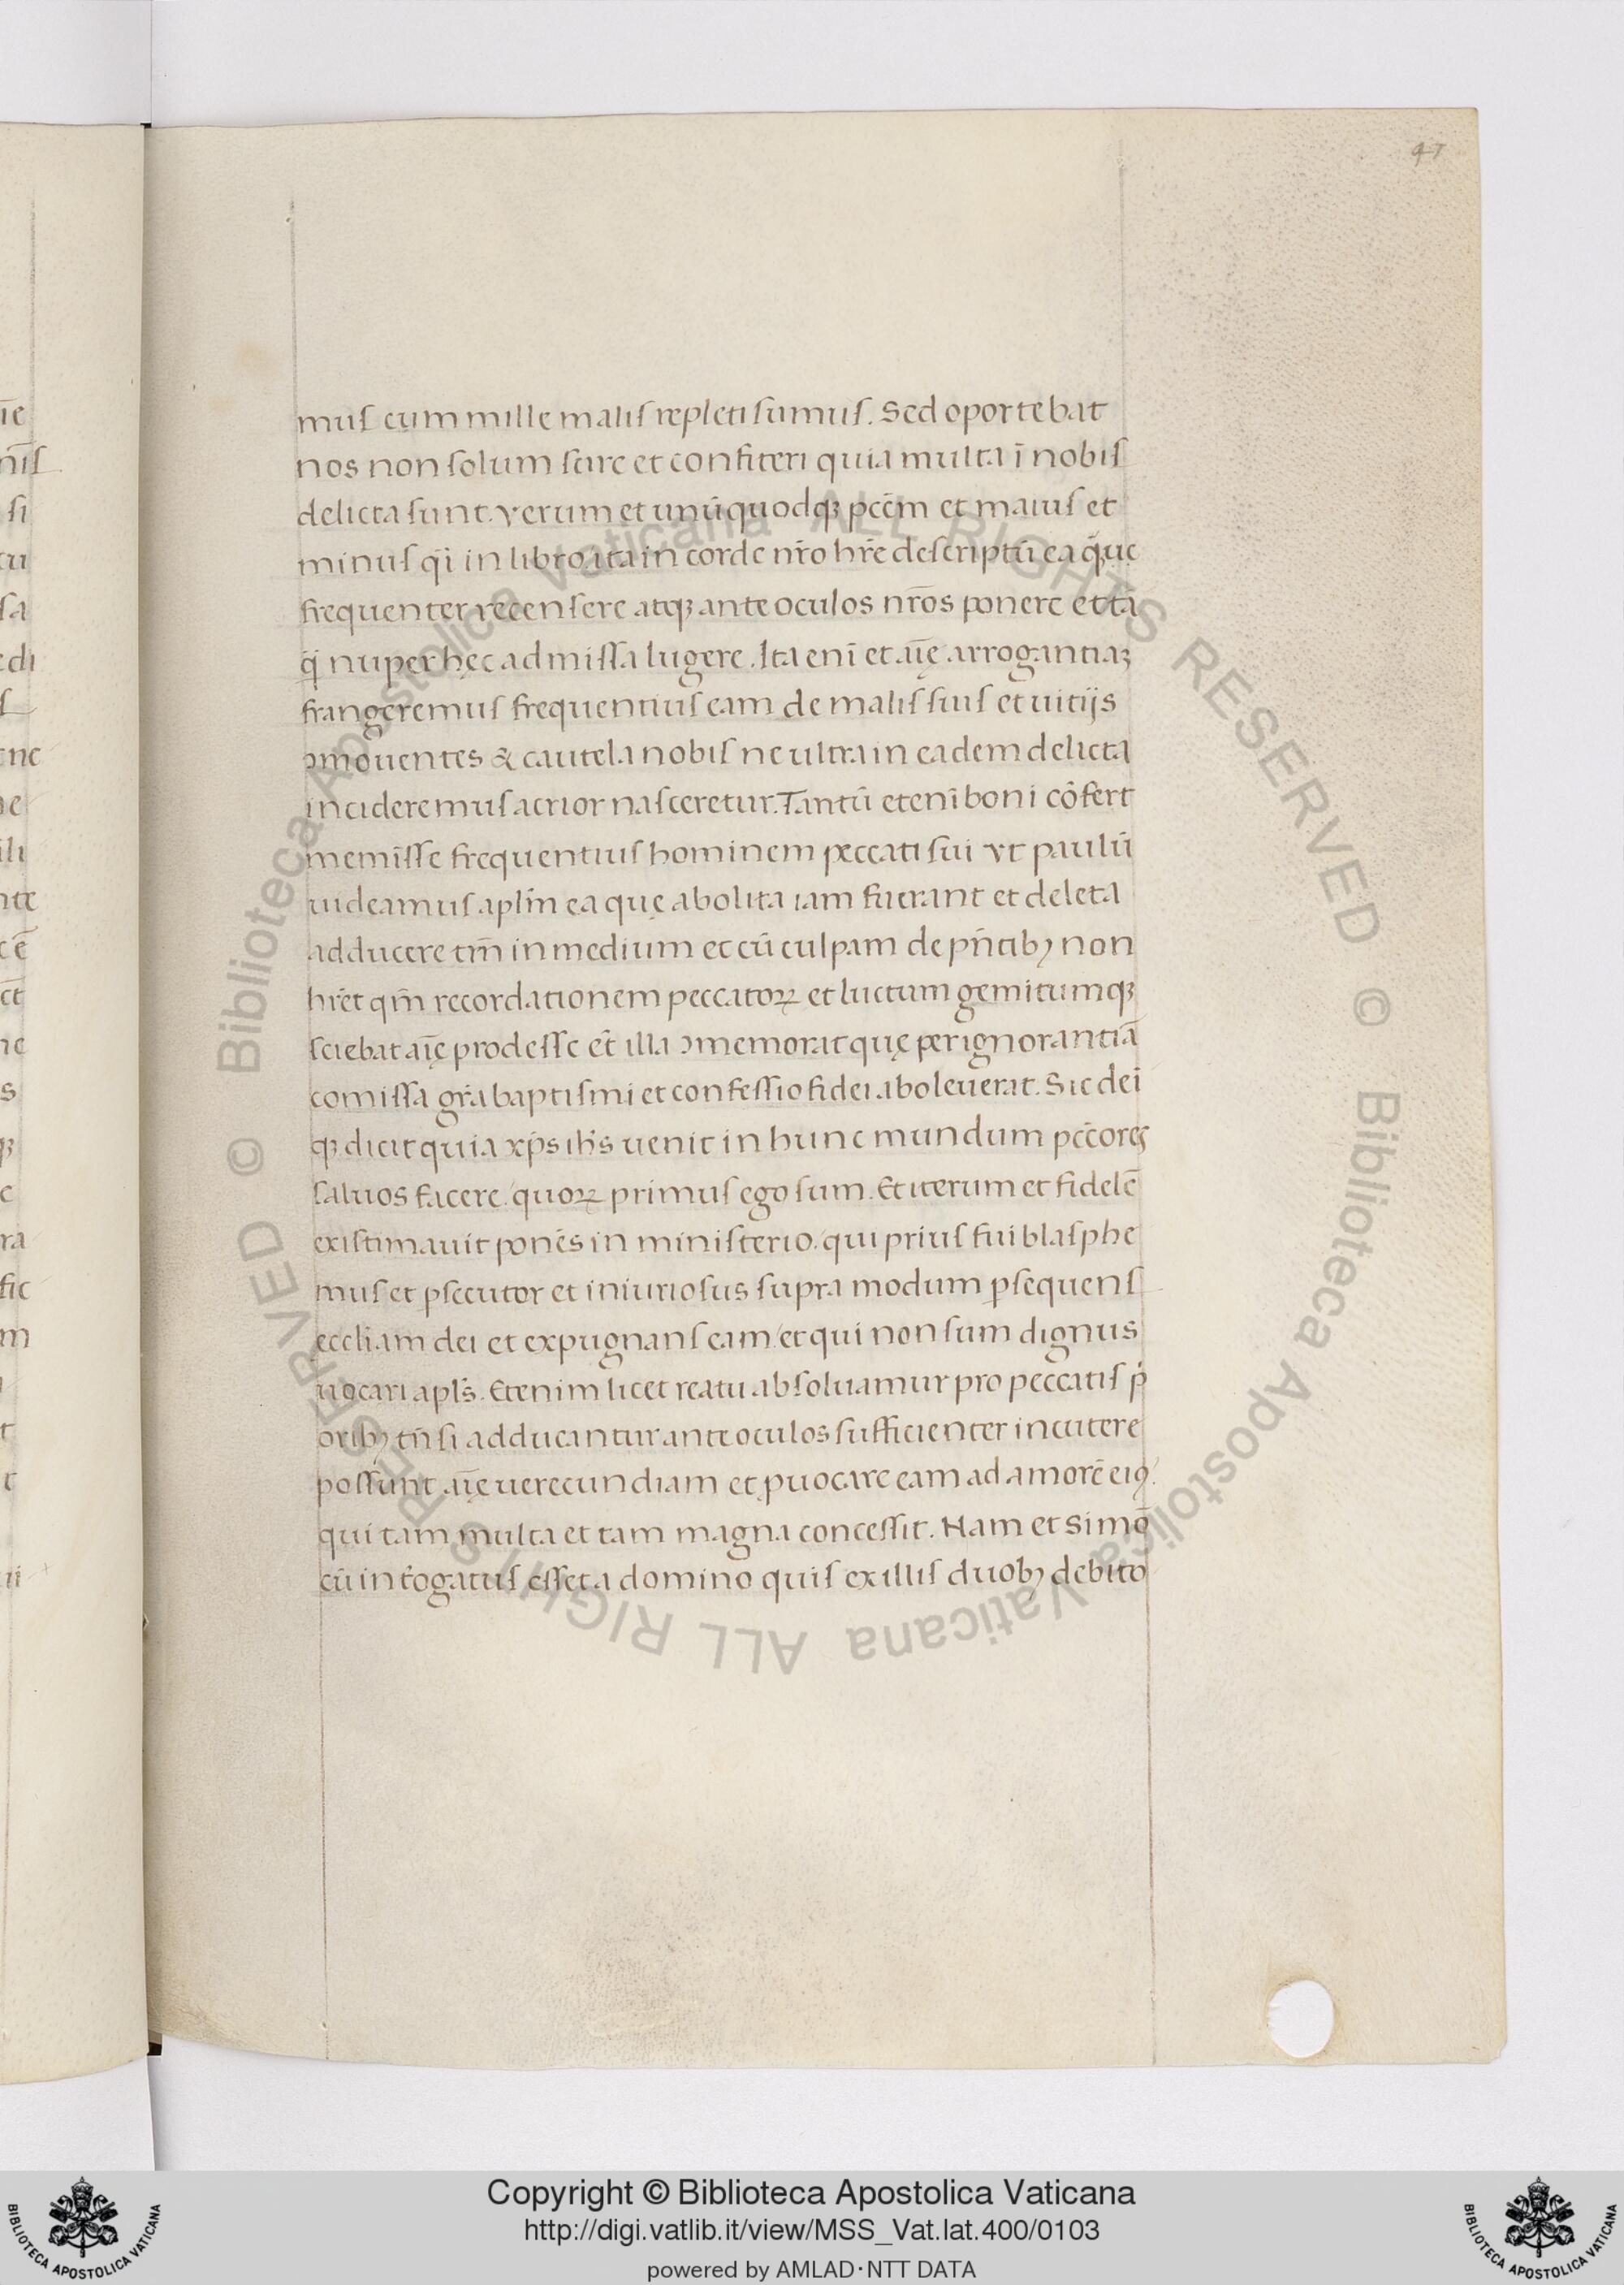 47
muſ cum mille maliſ repleti ſumuſ. Sed oportebat
nos non ſolum ſcire et confiteri quia multa ī nobiſ
delicta ſunt. verum et unūquodqꝫ pcc̄m et maiuſ et
minuſ qi in libro ita in corde nr̄o hr̄e deſcriptū ea q̄ue
frequenter recenſere atqꝫ ante oculos nr̄os ponere et tā
q̄ nuper hęc admiſſa lugere. Ita eni̅ et aīę arrogantiaꝫ
frangeremuſ frequentiuſ eam de maliſ ſuiſ et uitijs
ꝯmouentes & cautela nobiſ ne ultra in eadem delicta
incideremuſ acrior naſceretur. Tantū etenī boni cōfert
meminiſſe frequentiuſ hominem peccati ſui vt paulū
uideamuſ apl̄m ea quę abolita iam fuerant et deleta
adducere tm̄ in medium et cū culpam de pn̄tibꝫ non
hr̄et qm̄ recordationem peccatoꝝ et luctum gemitumqꝫ
ſciebat aīę prodeſſe et illa ꝯmemorat quę per ignorantiā
comiſſa gr̄a baptiſmi et confeſſio fidei aboleuerat. Sic dei
qꝫ dicit quia xp̄s ih̄s uenit in hunc mundum pcc̄oreſ
ſaluos facere. quoꝝ primuſ ego ſum. Et iterum et fidelē
exiſtimauit ponēs in miniſterio. qui priuſ fui blaſphe
muſ et pſecutor et iniurioſus ſupra modum pſequenſ
eccl̄iam dei et expugnanſ eam. et qui non ſum dignus
uocari apl̄s. Etenim licet reatu abſoluamur pro peccatiſ p̄
oribꝫ tn̄ ſi adducantur ante oculos ſufficienter incutere
poſſunt aīę uerecundiam et ꝓuocare eam ad amorē eiꝰ.
qui tam multa et tam magna conceſſit. Nam et Simō
cū int̄ogatuſ eſſet a domino quiſ ex illiſ duobꝫ debito
Copyright © Biblioteca Apostolica Vaticana
http://digi.vatlib.it/view/MSS_Vat.lat.400/0103
powered by AMLAD·NTT DATA